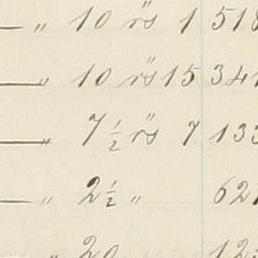 — „ 10 rs̈ 1 518
— „ 10 rs̈ 15 341
— „ 7 1/2 rs̈ 7 133
— „ 2 1/2 „ 627
„ 20 123